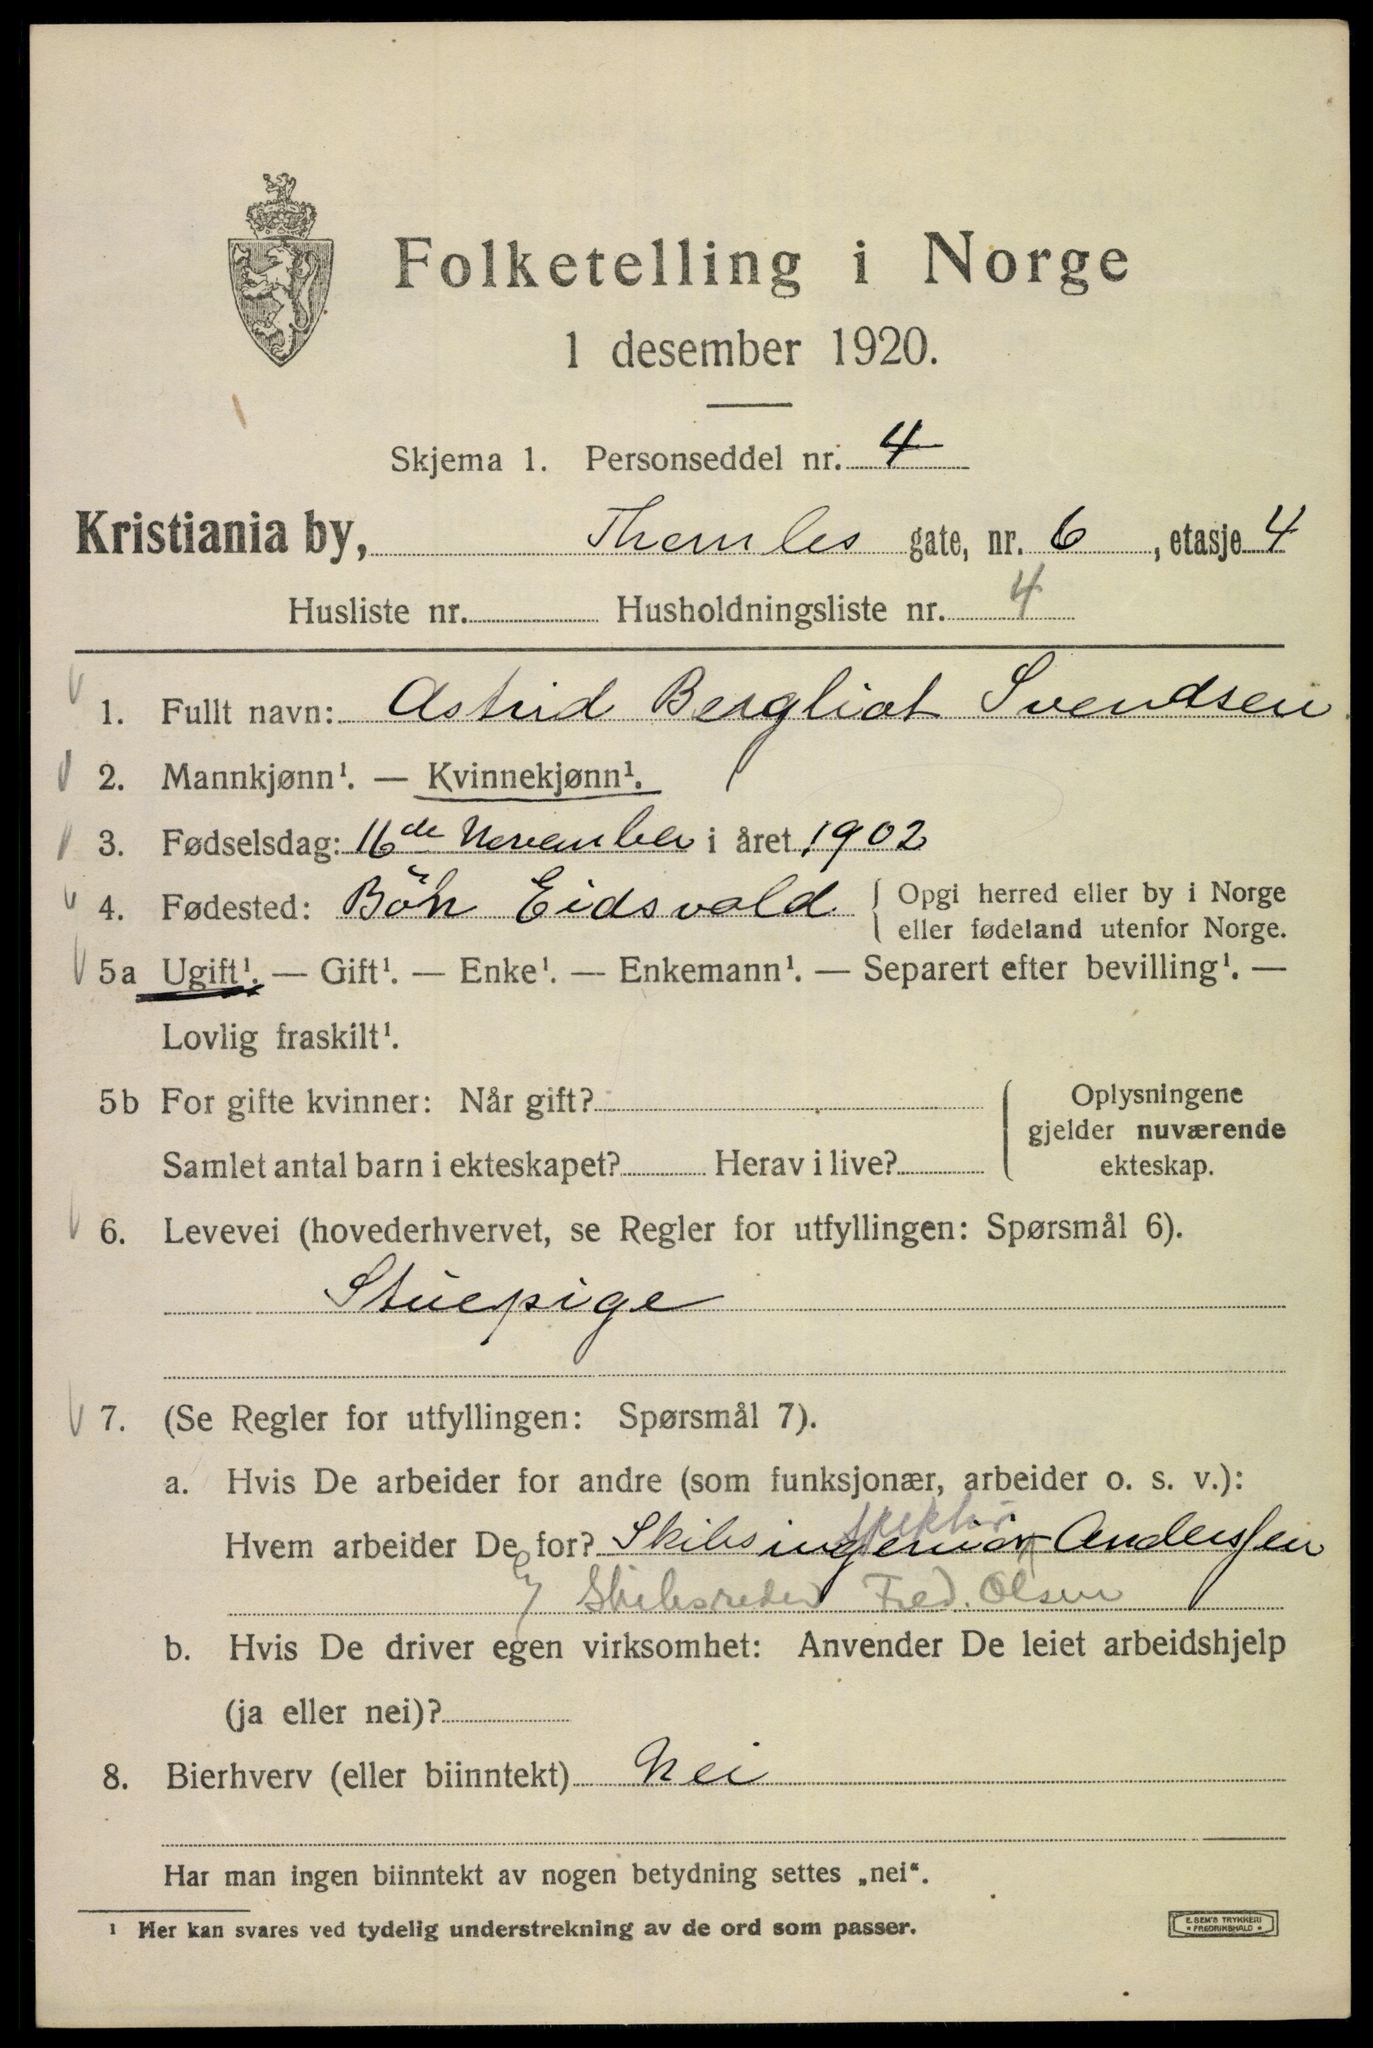 Folketelling i Norge
1 desember 1920.
Skjema 1. Personseddel nr. 4
Kristiania by, Themles gate, nr. 6, etasje 4
Husliste nr. Husholdningsliste nr. 4
1. Fullt navn: Astrid Bergliot Svendsen
2. Mannkjønn¹. — Kvinnekjønn¹.
3. Fødselsdag: 16de November i året 1902
4. Fødested: Böhn Eidsvold { Opgi herred eller by i Norge
eller fødeland utenfor Norge.
5a Ugift¹. — Gift¹. — Enke¹. — Enkemann¹. — Separert efter bevilling¹. —
Lovlig fraskilt¹.
5b For gifte kvinner: Når gift?
Samlet antal barn i ekteskapet? Herav i live?
Oplysningene
gjelder nuværende
ekteskap.
6. Levevei (hovederhvervet, se Regler for utfyllingen: Spørsmål 6).
Stuepige
7. (Se Regler for utfyllingen: Spørsmål 7).
a. Hvis De arbeider for andre (som funksjonær, arbeider o. s. v.):
spektør
Hvem arbeider De for? Skibsingeniør Anderssen
Skibsreder Fred. Olsen
b. Hvis De driver egen virksomhet: Anvender De leiet arbeidshjelp
(ja eller nei)?
8. Bierhverv (eller biinntekt) Nei
Har man ingen biinntekt av nogen betydning settes „nei“.
¹ Her kan svares ved tydelig understrekning av de ord som passer.
E. SEM'S TRYKKERI
FREDRIKSHALD